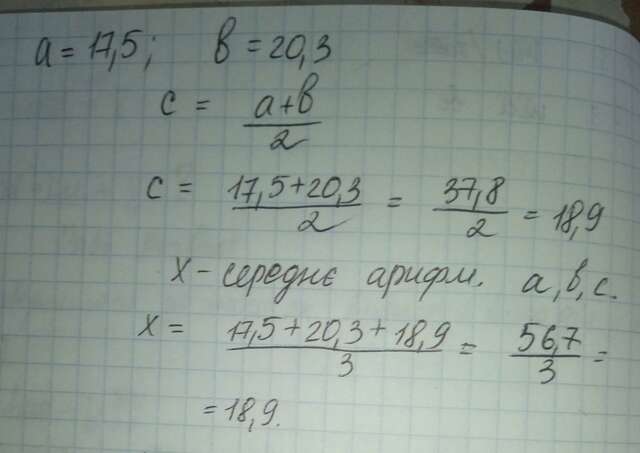 a = 17,5; в = 20,3
c = a+в/2
c = 17,5+20,3/2 = 37,8/2 = 18,9
x - середнє арифм. a, в, c.
x = 17,5+20,3+18,9/3 = 56,7/3 =
= 18,9.